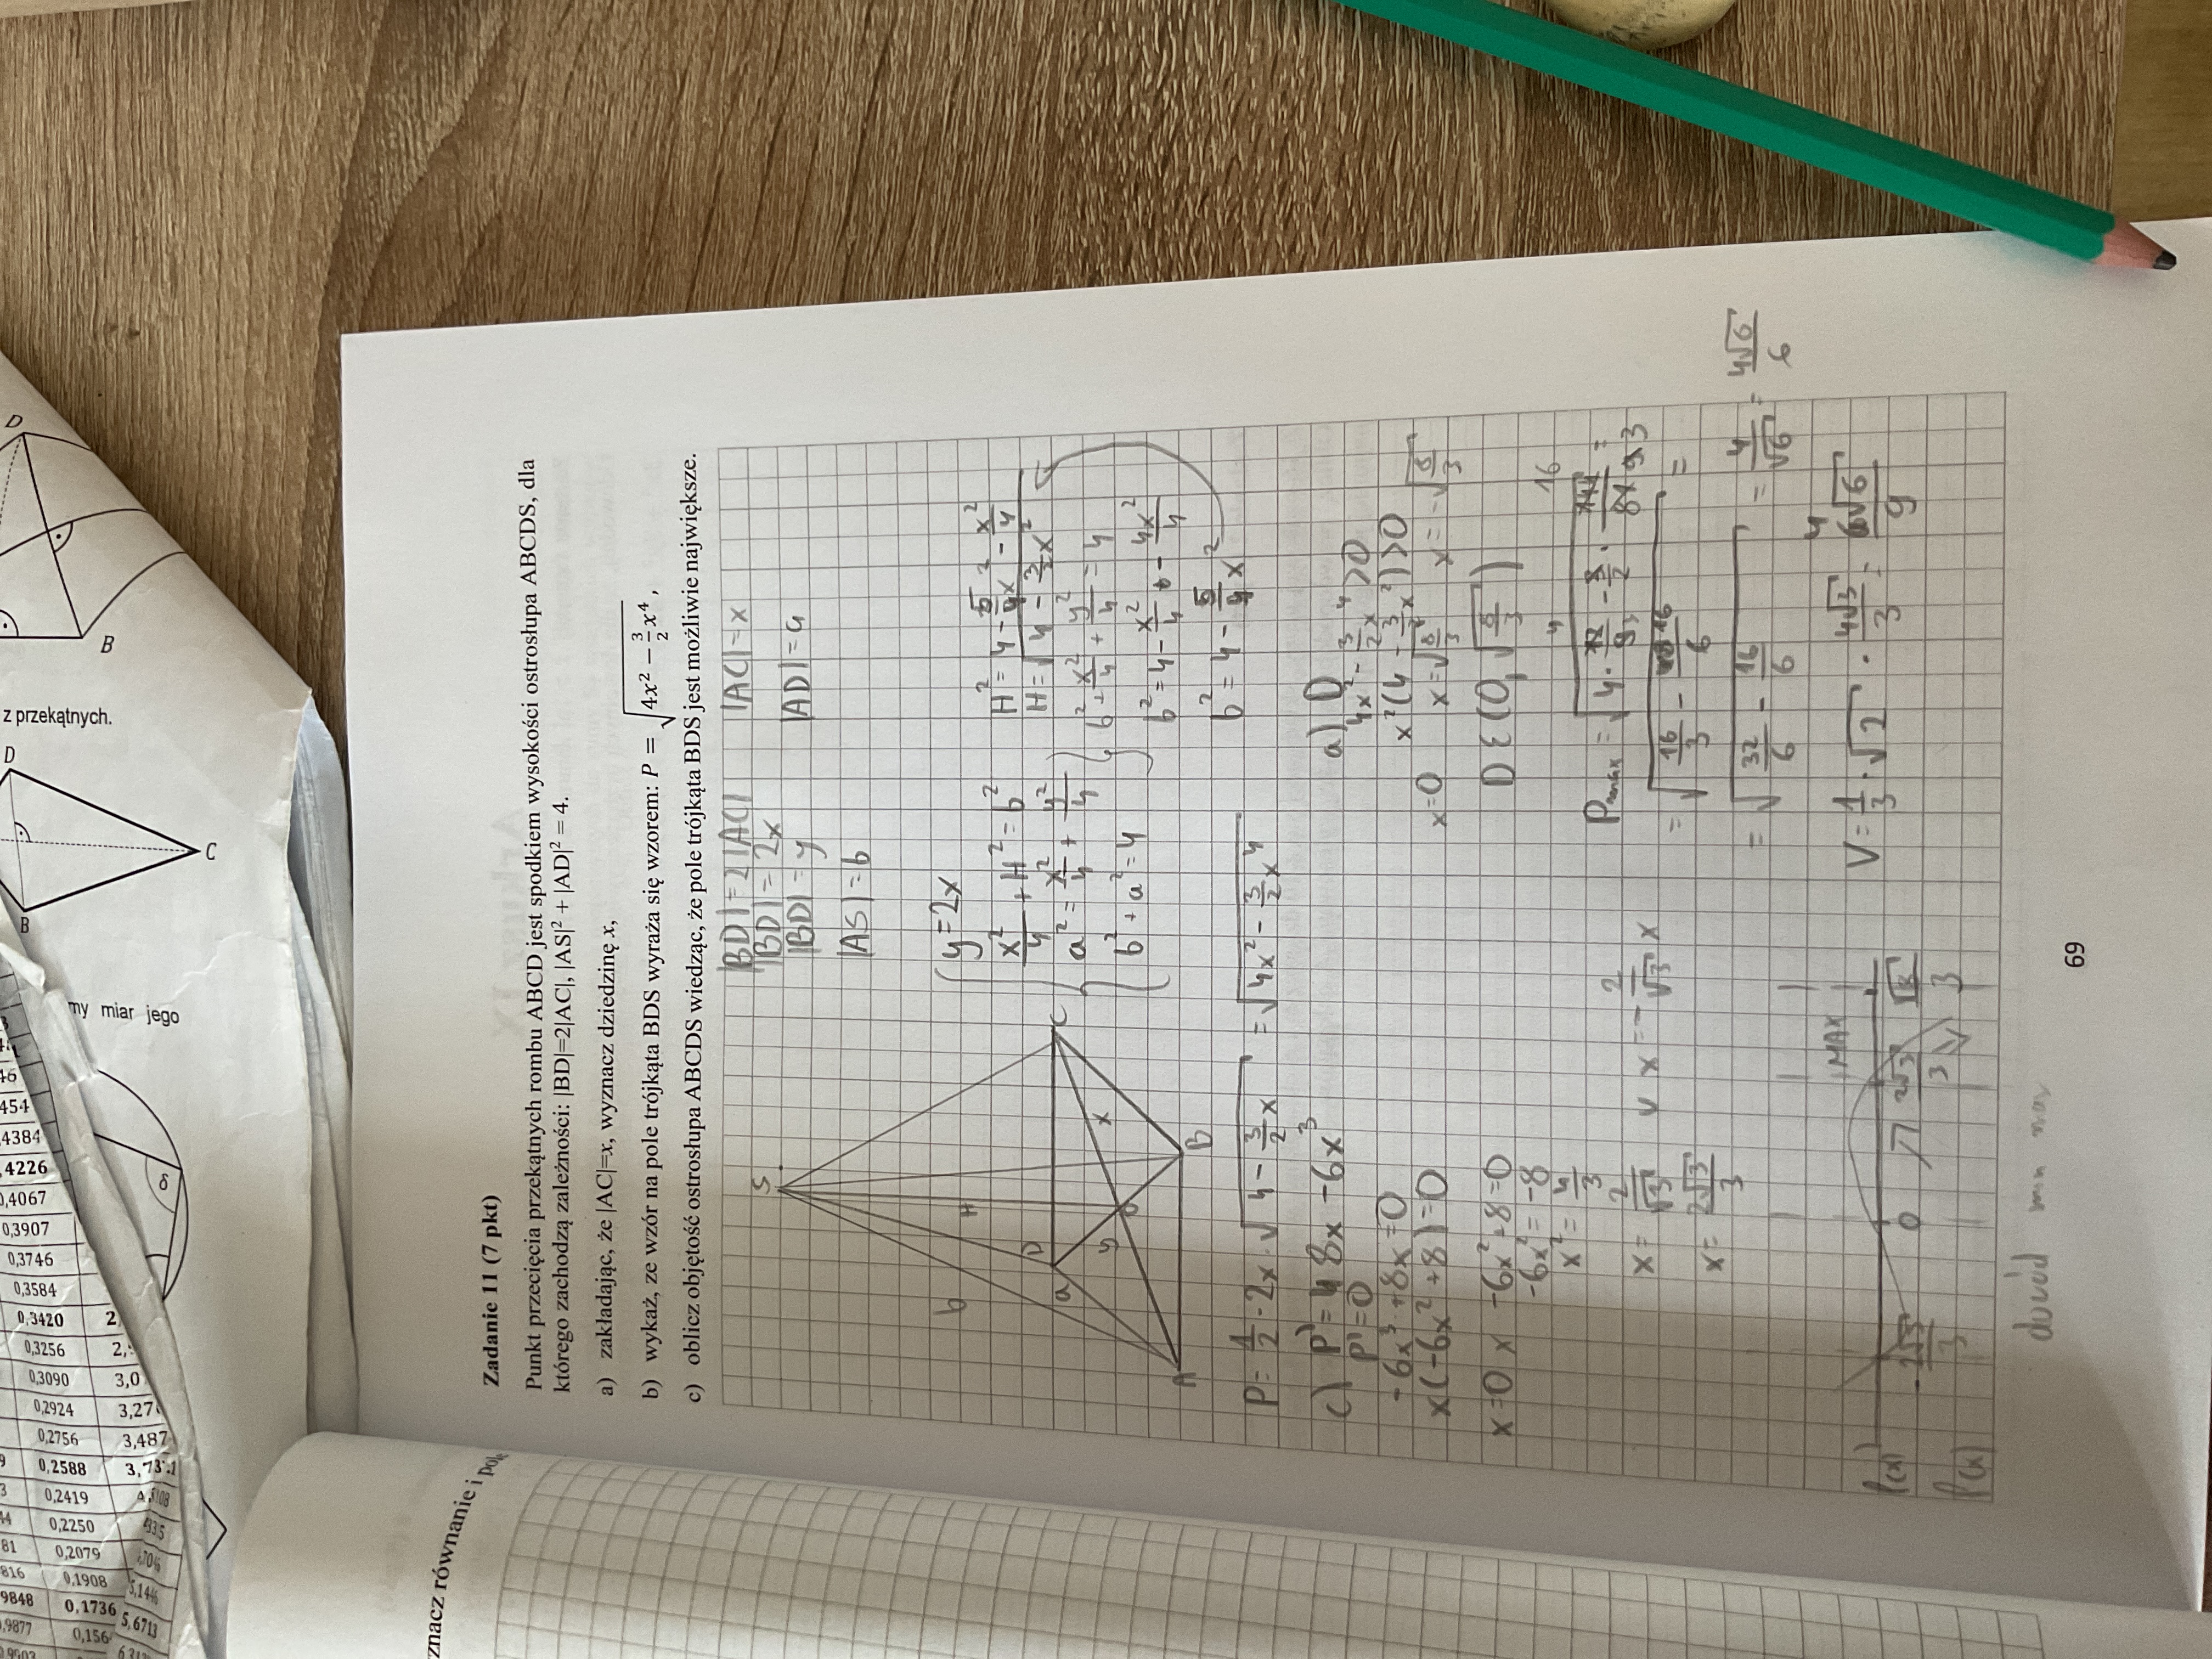 Zadanie 11 (7 pkt)
Punkt przecięcia przekątnych rombu ABCD jest spodkiem wysokości ostrosłupa ABCDS, dla
którego zachodzą zależności: |BD|=2|AC|, |AS|² + |AD|² = 4.
a) zakładając, że |AC|=x, wyznacz dziedzinę x,
b) wykaż, ze wzór na pole trójkąta BDS wyraża się wzorem: P = √(4x² − 3/2 x⁴) ,
c) oblicz objętość ostrosłupa ABCDS wiedząc, że pole trójkąta BDS jest możliwie największe.
|BD| = 2|AC| |AC| = x
|BD| = 2x
|BD| = y |AD| = a
|AS| = b
S
H
b
D
C
a
y
x
A
B
y = 2x
x²/4 + H² = b²
a² = x²/4 + y²/4
b² + a² = 4
H² = 4 - 5/4x² - x²/4
H = √(4 - 3/2x²)
b² + x²/4 + y²/4 = 4
b² = 4 - x²/4 - 4x²/4
b² = 4 - 5/4x²
P = 1/2 · 2x · √(4 - 3/2x) = √(4x² - 3/2x⁴)
a) D
4x² - 3/2x⁴ > 0
x²(4 - 3/2x²) > 0
x=0 x = √(8/3) x = -√(8/3)
D ∈ (0, √(8/3))
c) P' = 8x - 6x³
P' = 0
-6x³ + 8x = 0
x(-6x² + 8) = 0
x = 0 -6x² + 8 = 0
-6x² = -8
x² = 4/3
x = 2/√3 v x = -2/√3
x = 2√3/3
= √(16/3 - 16/6) =
= √(32/6 - 16/6) = 4/√6 = 4√6/6
V = 1/3 · √2 · 4√3/3 = 4√6/9
MAX
-2√3/3 0 2√3/3
f(x)
min max
69
z przekątnych.
D
B
C
D
B
my miar jego
δ
znacz równanie i pole
454
4384
,4226
0,4067
0,3907
0,3746
0,3584
0,3420 2,
0,3256
0,3090 3,0
0,2924
0,2756 3,487
0,2588
0,2419
0,2250
0,2079
0,1908
0,1736 5,6713